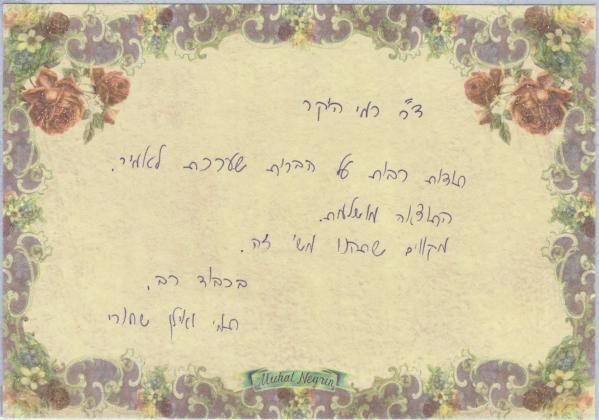 ד"ר רמי היקר
תודות רבות על הברית שערכת לאמיר.
התוצאה מושלמת.
מקווים שתהנו מש' זה.
בכבוד רב,
תמי ואילן שחורי
Michal Negrin